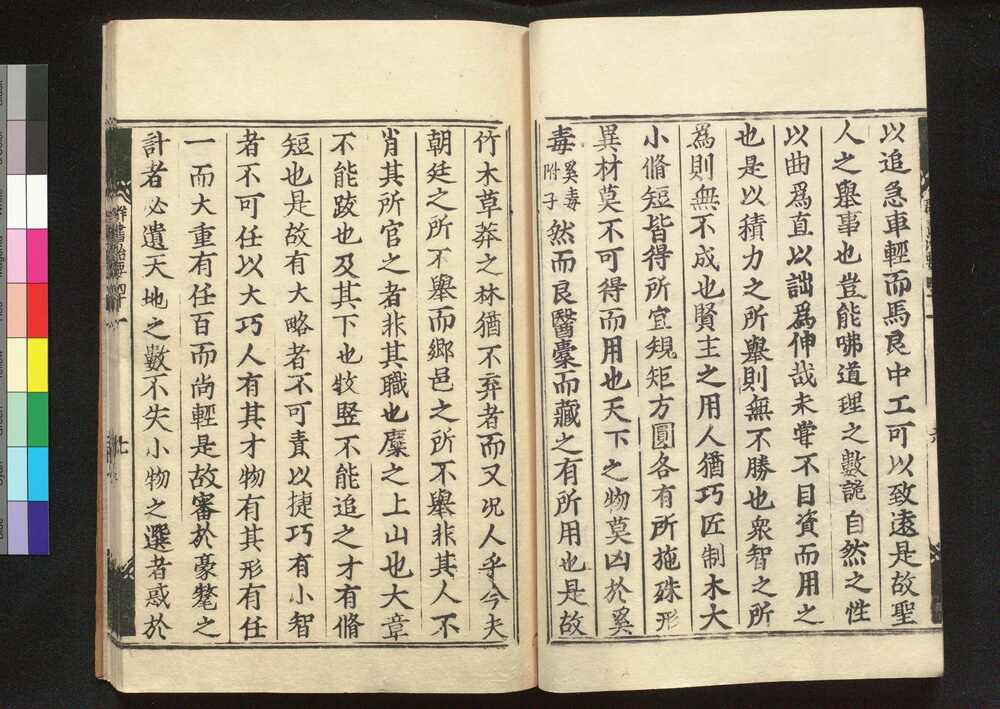 以追急車輕而馬良中工可以致遠是故聖
人之舉事也豈能咈道理之數詭自然之性
以曲爲直以詘爲伸哉未甞不目資而用之
也是以積力之所舉則無不勝也衆智之所
爲則無不成也賢主之用人猶巧匠制木大
小脩短皆得所宜規矩方圓各有所施殊形
異材莫不可得而用也天下之物莫凶於奚
毒奚毒附子然而良醫橐而藏之有所用也是故
竹木草莽之林猶不弃者而又况人乎今夫
朝廷之所不舉而鄉邑之所不舉非其人不
肖其所官之者非其職也麋之上山也大章
不能跂也及其下也牧竪不能追之才有脩
短也是故有大略者不可責以捷巧有小智
者不可任以大巧人有其才物有其形有任
一而大重有任百而尚輕是故審於豪氂之
計者必遺天地之數不失小物之選者惑於
群書治要四十一
七